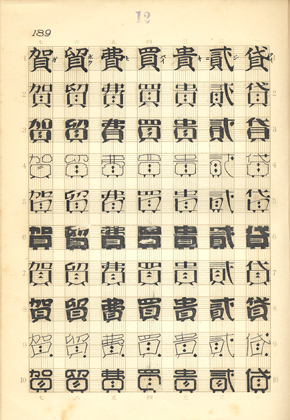 12
189
1 賀 貿 費 買 貴 貳 貸
2 賀 貿 費 買 貴 貳 貸
3 賀 貿 費 買 貴 貳 貸
4 賀 貿 費 買 貴 貳 貸
5 賀 貿 費 買 貴 貳 貸
6 賀 貿 費 買 貴 貳 貸
7 賀 貿 費 買 貴 貳 貸
8 賀 貿 費 買 貴 貳 貸
9 賀 貿 費 買 貴 貳 貸
10 賀 貿 費 買 貴 貳 貸